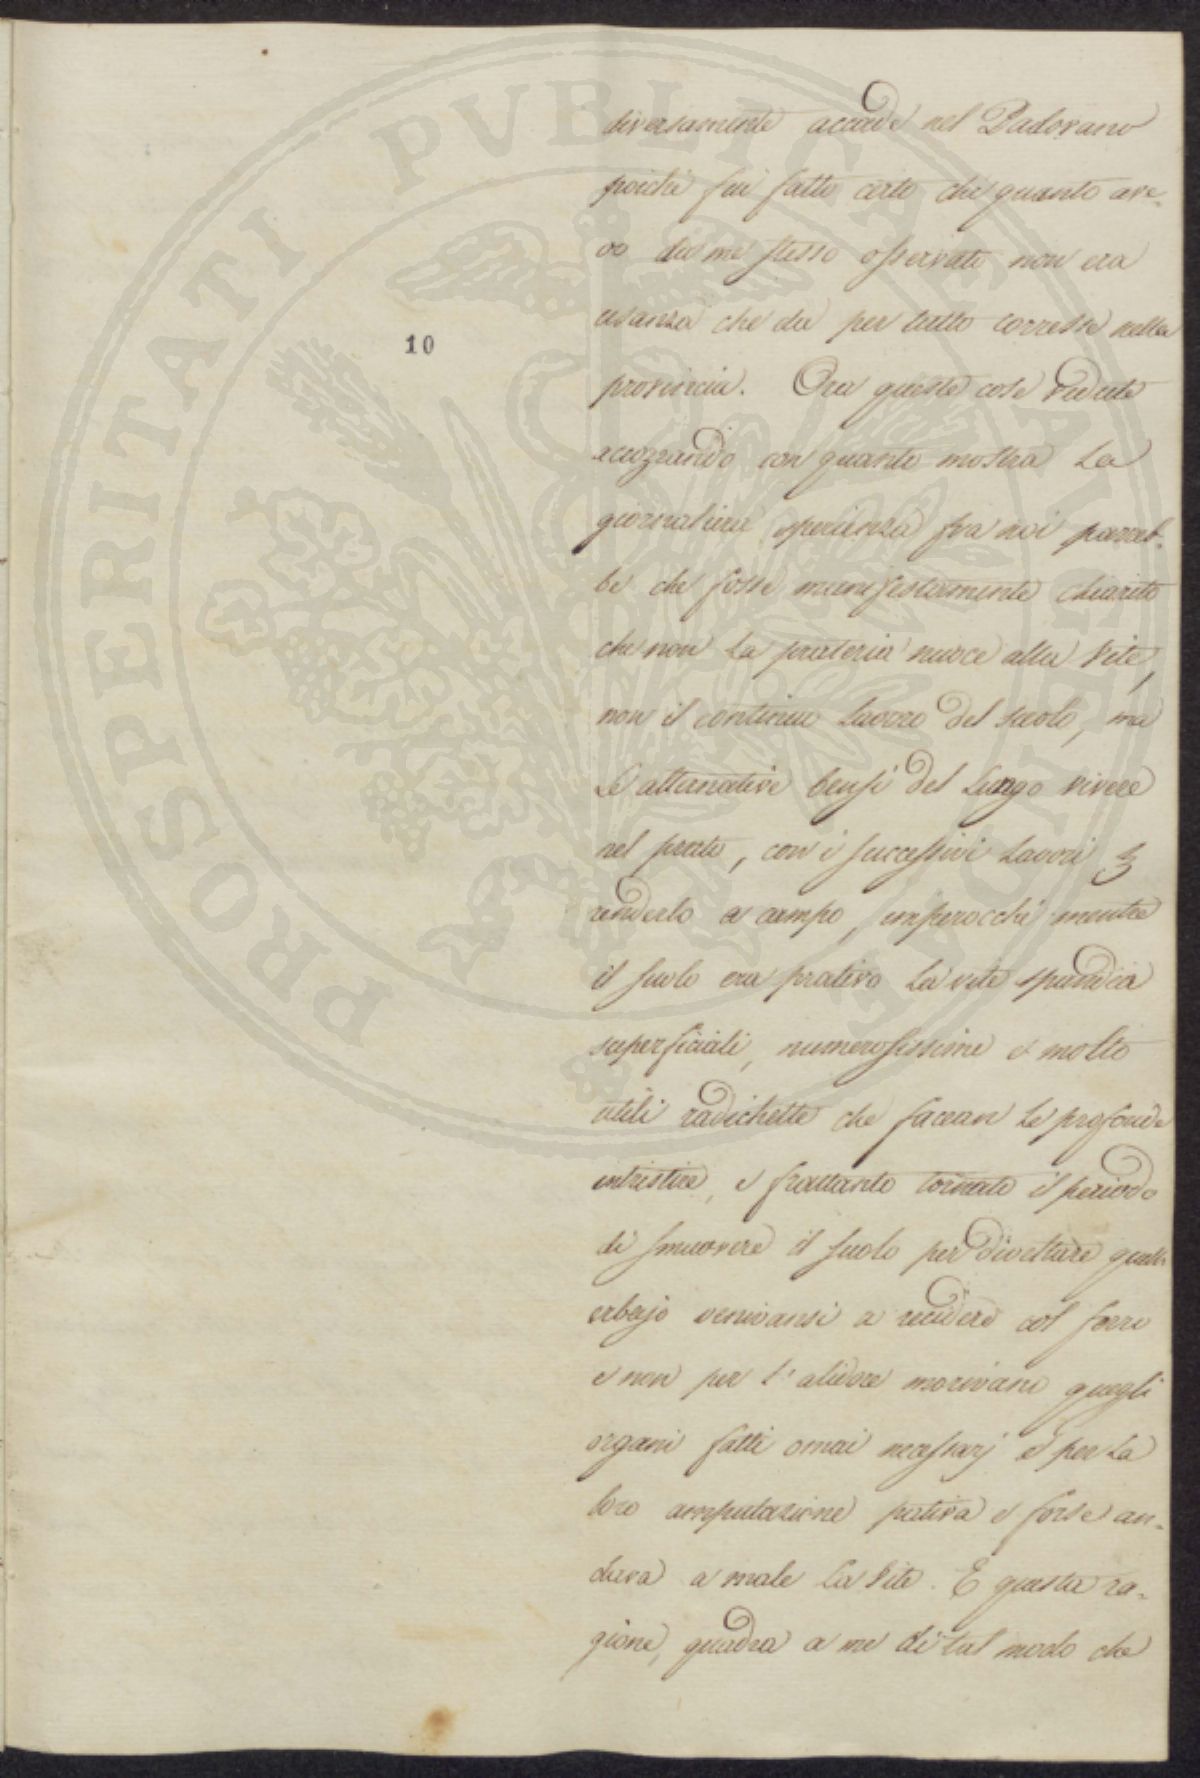 diversamente accade nel Padovano
poichè fui fatto certo che quanto ave-
vo da me stesso osservato non era
usanza che da per tutto corresse nella
provincia. Ora queste cose vedute
accozzando con quanto mostra la
giornaliera sperienza fra noi parreb-
be che fosse manifestamente chiarito
che non la prateria nuoce alla vite,
non il continuo lavoro del suolo, ma
le alternative bensì del lungo vivere
nel prato, con i successivi lavori
renderlo a campo, imperocchè mentre
il suolo era prativo la vite spandea
superficiali, numerosissime e molto
utili radichette che facean le profonde
intristire, e frattanto tornato il periodo
di smuovere il suolo per divettare quell'
erbajo venivansi a recidere col ferro
e non per l'alidore morivano quegli
organi fatti omai necessarj e per la
loro amputazione pativa e forse an-
dava a male la vite. E questa ra-
gione, quadra a me di tal modo che
10
PROSPERITATI PVBLICAE AVGENDAE